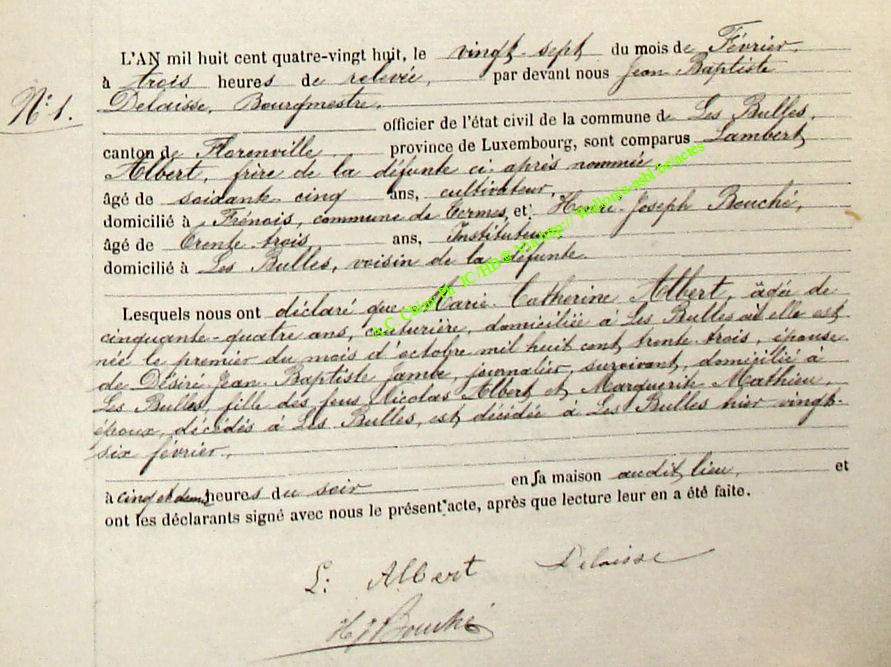 L'AN mil huit cent quatre-vingt huit, le vingt-sept du mois de Février,
à trois heures de relevée, par devant nous Jean Baptiste
N° 1.
Delaisse, Bourgmestre,
officier de l'état civil de la commune de Les Bulles,
canton de Florenville province de Luxembourg, sont comparus Lambert
Albert, frère de la défunte ci-après nommée,
âgé de soixante cinq ans, cultivateur,
domicilié à Frénois, commune de Termes, et Henri-Joseph Bouché,
âgé de trente trois ans, Instituteur,
domicilié à Les Bulles, voisin de la défunte.
Lesquels nous ont déclaré que Marie-Catherine Albert, âgée de
cinquante-quatre ans, couturière, domiciliée à Les Bulles où elle est
née le premier du mois d'octobre mil huit cent trente-trois, épouse
de Désiré Jean-Baptiste Jambe, journalier, survivant, domicilié à
Les Bulles, fille des feus Nicolas Albert et Marguerite Mathieu,
époux, décédés à Les Bulles, est décédée à Les Bulles hier vingt-
six février,
à cinq et demie heures du soir en sa maison audit lieu, et
ont les déclarants signé avec nous le présent acte, après que lecture leur en a été faite.
L: Albert Delaisse
H J Bouché